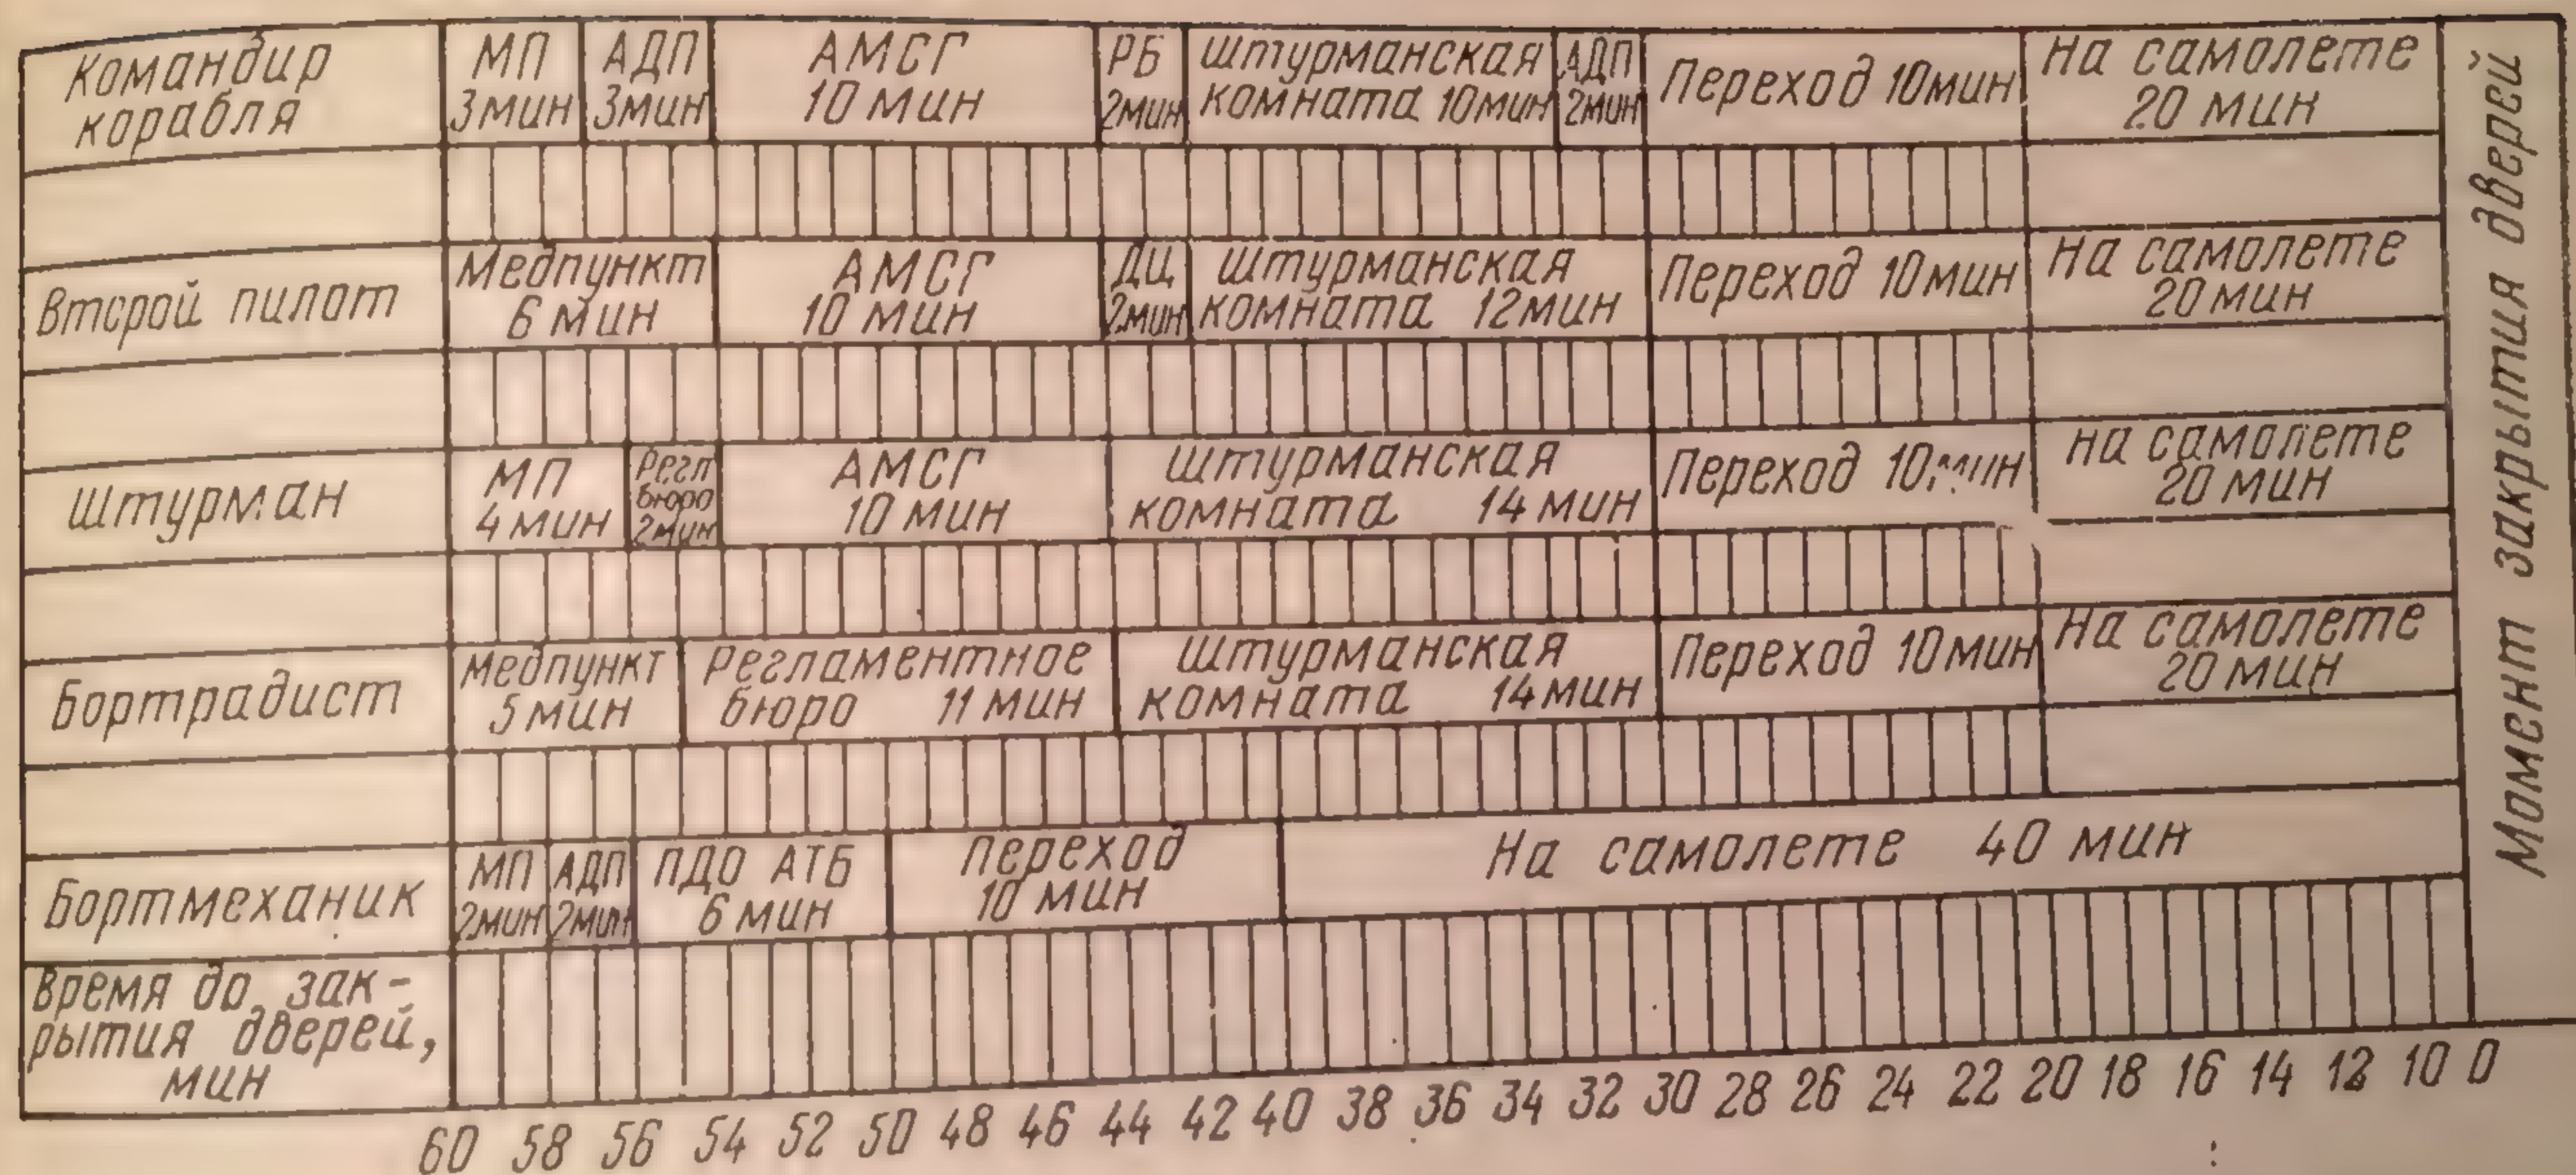 Командир
корабля
МП
3мин
АДП
3мин
АМСГ
10 мин
РБ
2мин
штурманская
комната 10мин
АДП
2мин
Переход 10мин
На самолете
20 мин
Второй пилот
Медпункт
6 мин
АМСГ
10 мин
ДЦ
2мин
штурманская
комната 12мин
Переход 10мин
На самолете
20мин
Штурман
МП
4мин
Регл
бюро
2мин
АМСГ
10 мин
штурманская
комната 14мин
Переход 10мин
на самолете
20 мин
Бортрадист
Медпункт
5мин
Регламентное
бюро 11мин
штурманская
комната 14мин
Переход 10мин
На самолете
20мин
Бортмеханик
МП
2мин
АДП
2мин
ПДО АТБ
6 мин
Переход
10 мин
На самолете 40 мин
Время до зак-
рытия дверей,
мин
60 58 56 54 52 50 48 46 44 42 40 38 36 34 32 30 28 26 24 22 20 18 16 14 12 10 0
Момент закрытия дверей